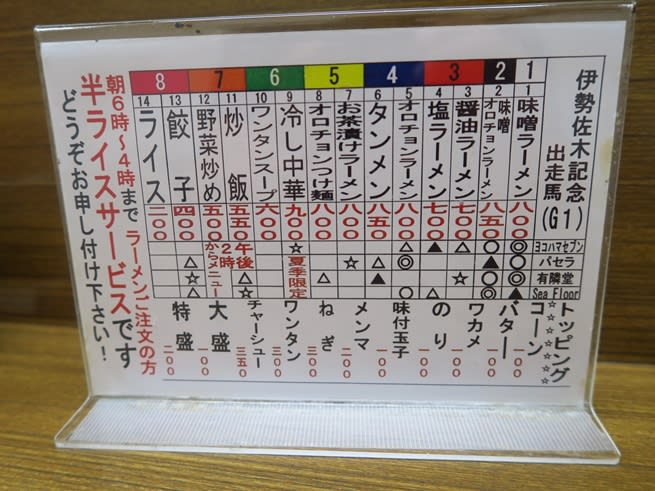 伊勢佐木記念
出走馬
(G1)
1 2 3 4 5 6 7 8
1 味噌ラーメン 八〇〇
2 味噌オロチョンラーメン 八五〇
3 醤油ラーメン 七〇〇
4 塩ラーメン 七〇〇
5 オロチョンラーメン 八〇〇
6 タンメン 八五〇
7 お茶漬けラーメン 八〇〇
8 オロチョンつけ麺 八〇〇
9 冷し中華 九〇〇 ☆ 夏季限定
10 ワンタンスープ 六〇〇
11 炒飯 五五〇
午後2時からメニュー
12 野菜炒め 五〇〇
13 餃子 四〇〇
14 ライス 二〇〇
ヨコハマセブン
パセラ
有隣堂
Sea Floor
トッピング☆☆☆☆☆
コーン
バター 一〇〇
ワカメ 一〇〇
のり 一〇〇
味付玉子 一〇〇
メンマ
ねぎ
ワンタン 三〇〇
チャーシュー 三五〇
大盛 一〇〇
特盛 二〇〇
朝6時〜4時まで ラーメンご注文の方
半ライスサービスです
どうぞお申し付け下さい！